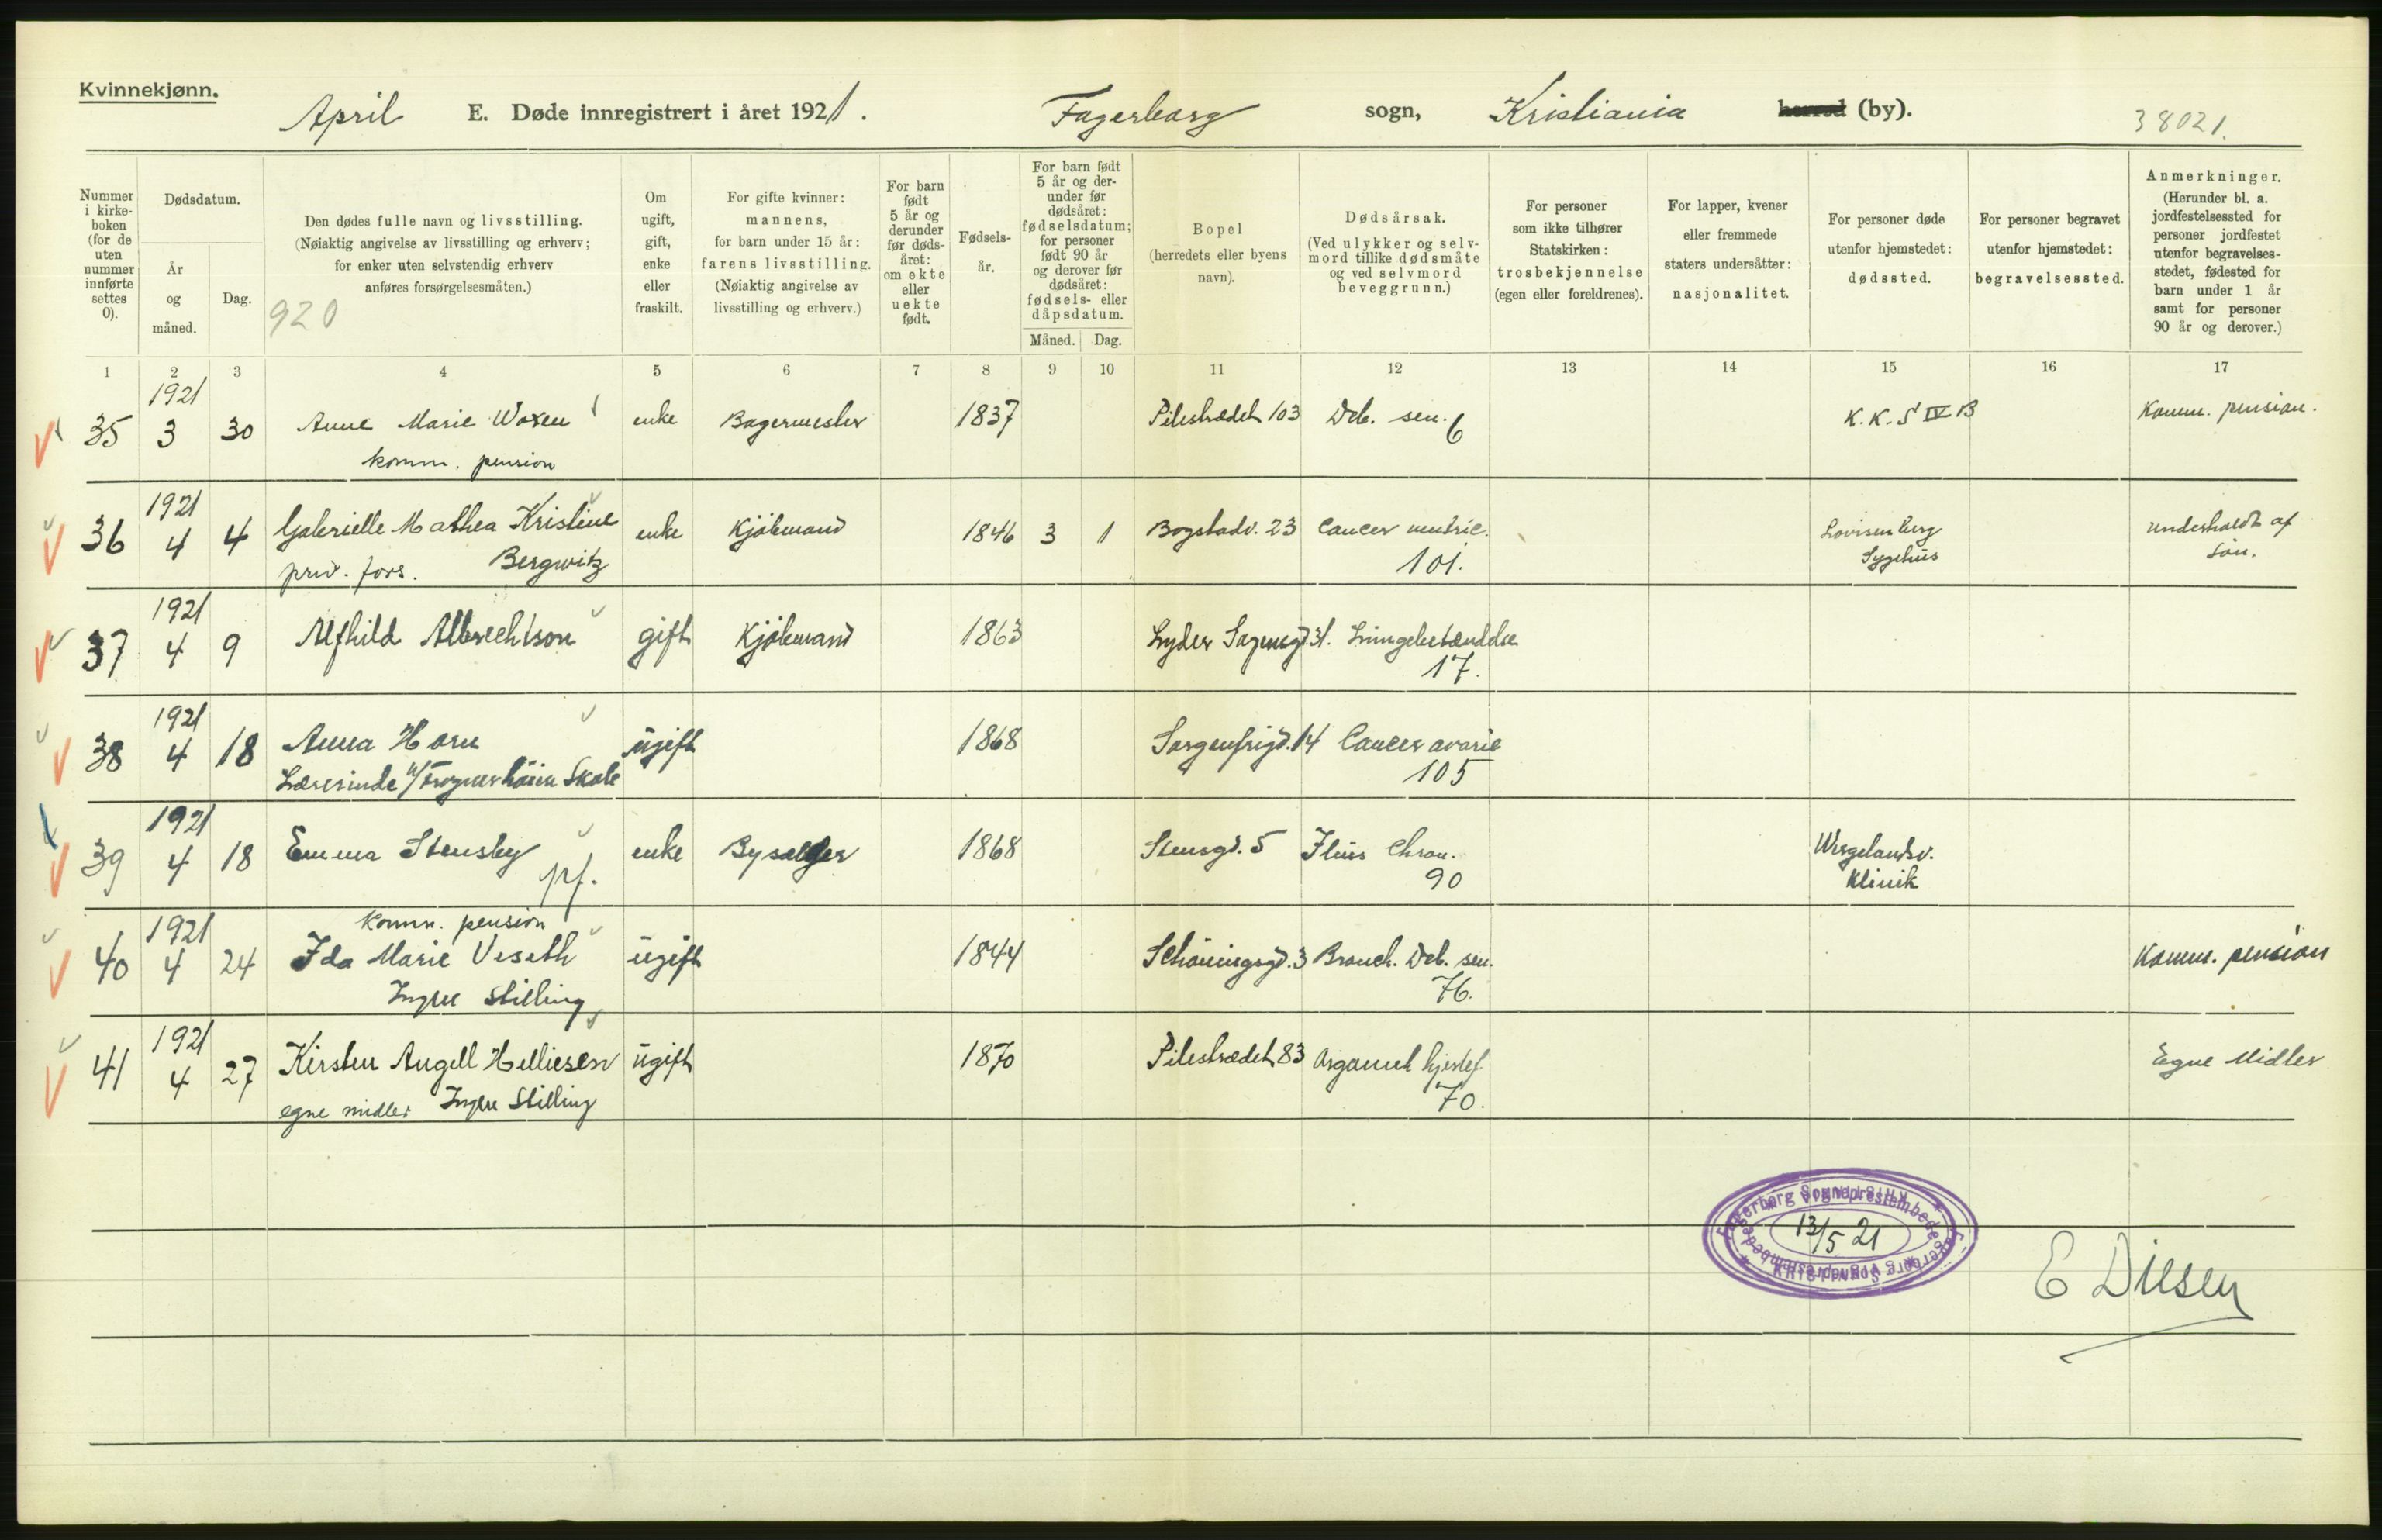 Kvinnekjønn.
April E. Døde innregistrert i året 1921. Fagerborg sogn, Kristiania herred (by). 38021.
Nummer i kirke-boken (for de uten nummer innførte settes 0).
Dødsdatum.
År og måned.
Dag.
Den dødes fulle navn og livsstilling.
(Nøiaktig angivelse av livsstilling og erhverv;
for enker uten selvstendig erhverv
anføres forsørgelsesmåten.)
920
Om ugift, gift, enke eller fraskilt.
For gifte kvinner: mannens, for barn under 15 år: farens livsstilling. (Nøiaktig angivelse av livsstilling og erhverv.)
For barn født 5 år og derunder før døds-året: om ekte eller uekte født.
Fødsels-år.
For barn født 5 år og der-under før dødsåret: fødselsdatum; for personer født 90 år og derover før dødsåret: fødsels- eller dåpsdatum.
Måned. Dag.
Bopel (herredets eller byens navn).
Dødsårsak. (Ved ulykker og selv-mord tillike dødsmåte og ved selvmord beveggrunn.)
For personer som ikke tilhører Statskirken: trosbekjennelse (egen eller foreldrenes).
For lapper, kvener eller fremmede staters undersåtter: nasjonalitet.
For personer døde utenfor hjemstedet: dødssted.
For personer begravet utenfor hjemstedet: begravelsessted.
Anmerkninger. (Herunder bl. a. jordfestelsessted for personer jordfestet utenfor begravelses-stedet, fødested for barn under 1 år samt for personer 90 år og derover.)
1 2 3 4 5 6 7 8 9 10 11 12 13 14 15 16 17
1921
35 3 30 Anne Marie Woxen enke Bagermester 1837 Pilestrædet 103 Deb. sen. 6 K.K.S IV B Komm. pension.
komm. pension
1921
36 4 4 Gabrielle Mathea Kristine enke Kjöbmand 1846 3 1 Bogstadv. 23 Cancer ventric. Lovisenberg underholdt af
priv. fors. Bergwitz 101. Sygehus sön.
1921
37 4 9 Alfhild Albrechtson gift Kjöbmand 1863 Lyder Sagensgd. 31. Lungebetændelse
17.
1921
38 4 18 Anna Horn ugift 1868 Sorgenfrigd. 14 Cancer ovarie
Lærerinde v/ Skole 105
1921
39 4 18 Emma Stensby enke 1868 Stensgd. 5 Ileus chron. Wergelandsv.
pf. 90 Klinik
komm. pension
1921
40 4 24 Ida Marie Veseth ugift 1844 Schöningsgd. 3 Bronch. Deb. sen. Komm. pension
Ingen Stilling 76.
1921
41 4 27 Kirsten Angell Helliesen ugift 1870 Pilestrædet 83 Organisk hjertef. Egne Midler
egne midler Ingen Stilling 70.
Fagerborg Sogneprestembede
KRISTIANIA
13/5 21
E Diesen